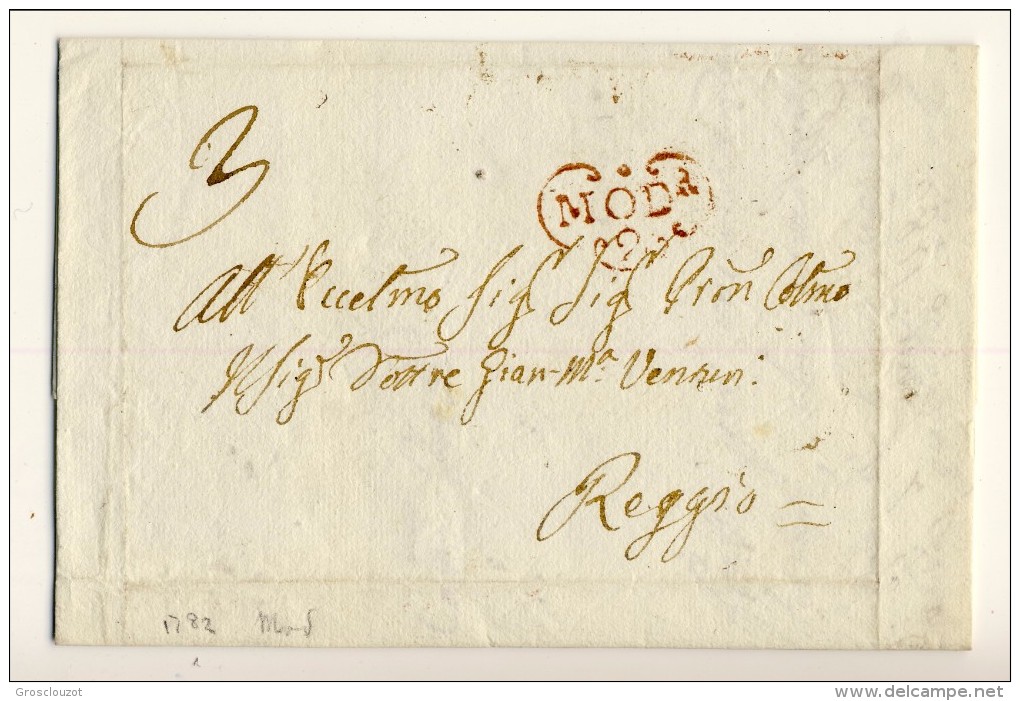 3
MOD.R
All' Eccelmo Sig.r Sig.r Pron Colmo
Il Sig.r Dottre Gian-M.a Venturi.
Reggio =
1782 Mod
Grosclouzot
www.delcampe.net